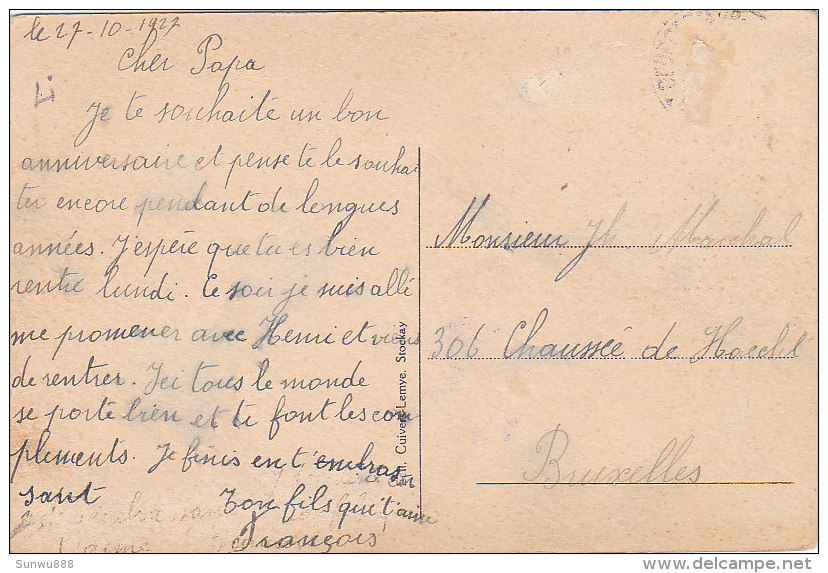 le 27-10-1927
Cher Papa
Je te souhaite un bon
anniversaire et pense te le souhai
ter encore pendant de longues
années. J'espère que tu es bien
rentré lundi. Ce soir je suis allé
me promener avec Henri et viens
de rentrer. Ici tous le monde
se porte bien et te font les com
pliments. Je finis en t'embras
sant
Ton fils qui t'aime
François
Cuivers-Lemye. Stockay
Monsieur Jh Marchal
306 Chaussée de Haecht
Bruxelles
Sunwu888
delcampe.net